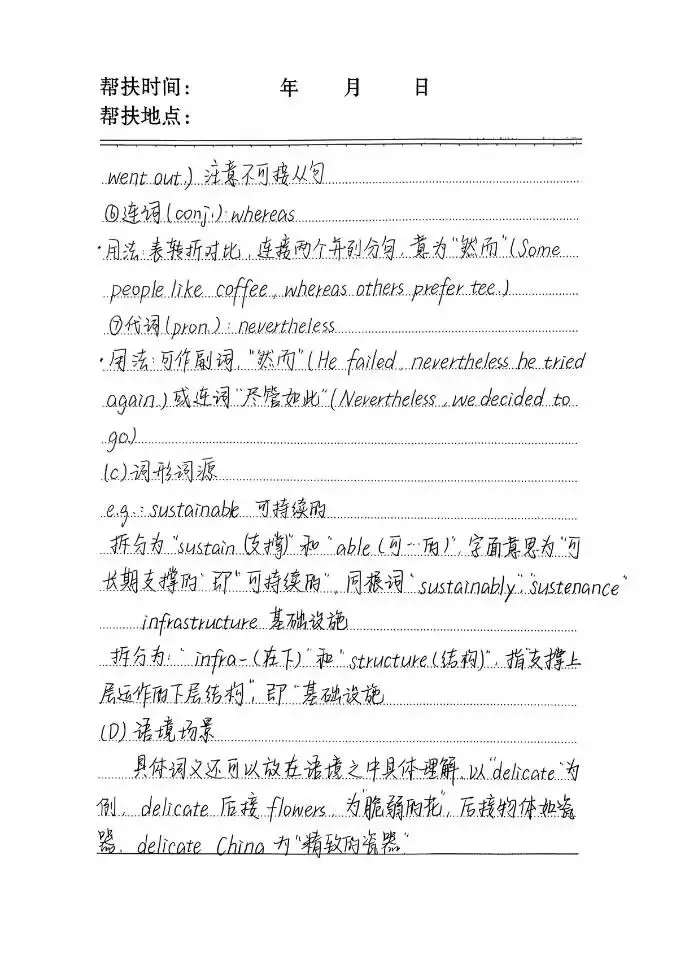 帮扶时间： 年 月 日
帮扶地点：
went out.) 注意不可接从句
⑥连词(conj.): whereas
·用法：表转折对比，连接两个并列分句，意为"然而"(Some
people like coffee, whereas others prefer tee.)
⑦代词(pron.): nevertheless
·用法：可作副词，"然而"(He failed, nevertheless he tried
again.) 或连词"尽管如此"(Nevertheless, we decided to
go.)
(C) 词形词源
e.g.: sustainable 可持续的
拆分为"sustain (支撑)"和"able (可…的)"，字面意思为"可
长期支撑的"即"可持续的"，同根词"sustainably","sustenance"
infrastructure 基础设施
拆分为："infra-(在下)"和"structure(结构)"，指"支撑上
层运作的下层结构"，即"基础设施
(D) 语境场景
具体词义还可以放在语境之中具体理解，以"delicate"为
例，delicate 后接 flowers，为"脆弱的花"，后接物体如瓷
器，delicate China 为"精致的瓷器"